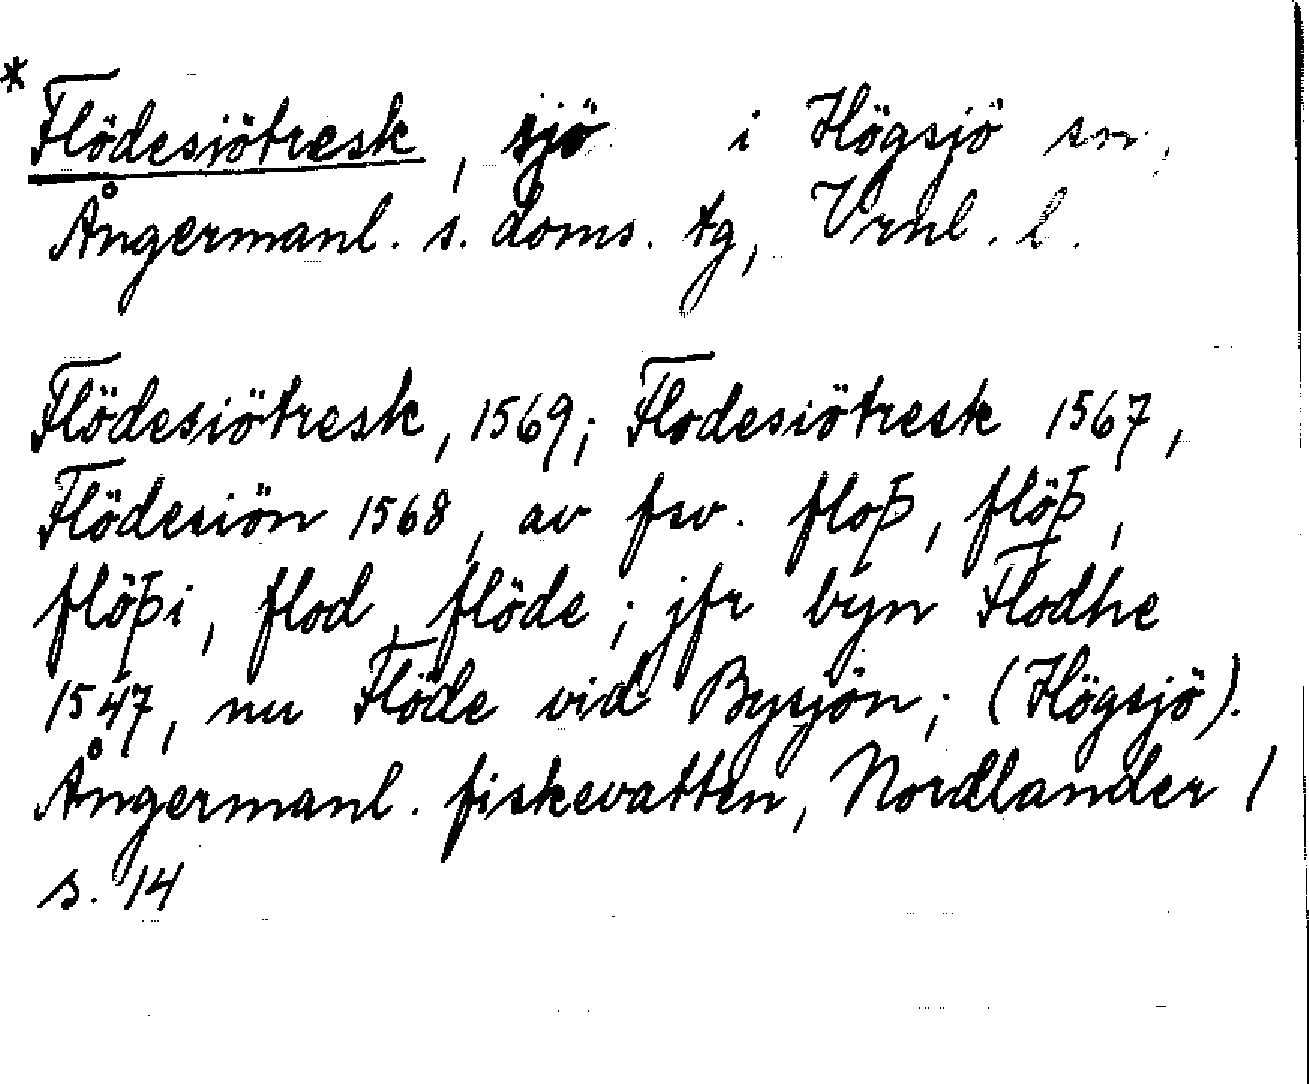 * Flödesiötresk, sjö i Högsjö sn,
Ångermanl. s. doms. tg, Vrnl. l.
Flödesiötresk, 1569; Flodesiötresk 1567,
Flödesiön 1568, av fsv. floþ, flöþ,
flöþi, flod, flöde; jfr byn Flodhe
1547, nu Flöde vid Bysjön; (Högsjö).
Ångermanl. fiskevatten, Nordlander 1
s. 14